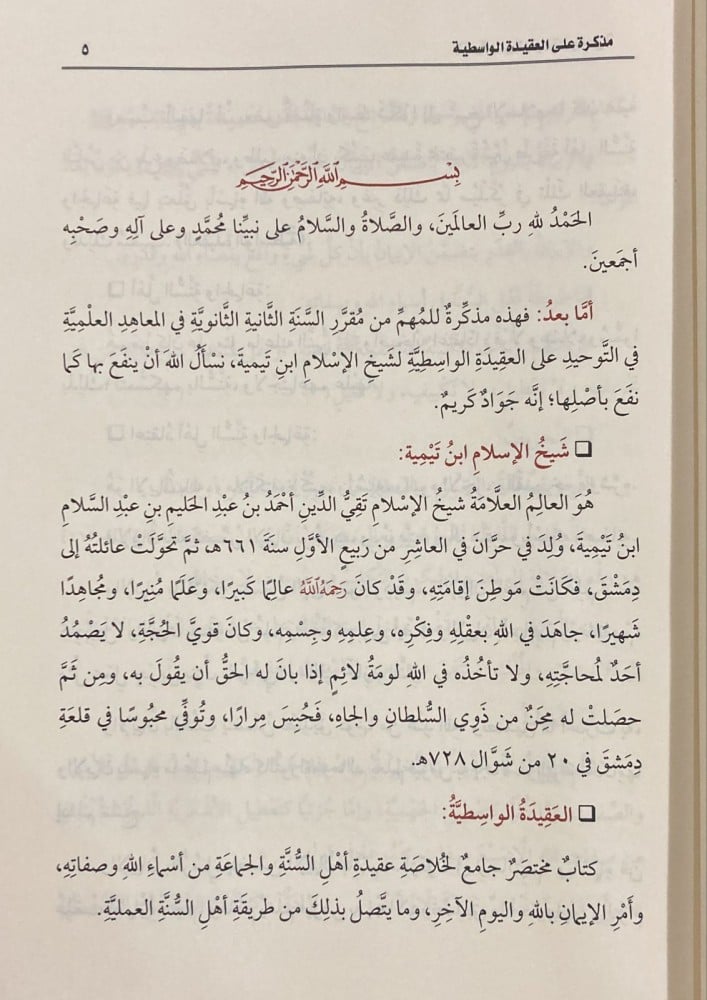 مذكرة على العقيدة الواسطية ٥
بِسْمِ اللَّهِ الرَّحْمَٰنِ الرَّحِيمِ
الحَمْدُ للهِ ربِّ العالَمَينَ، والصَّلاةُ والسَّلامُ على نبيِّنا مُحمَّدٍ وعلى آلِهِ وصَحْبِه
أجمَعينَ.
أمَّا بعدُ: فهذه مذكِّرةٌ للمُهمِّ من مُقرَّرِ السَّنَةِ الثَّانيةِ الثَّانويَّةِ في المعاهدِ العلْميَّةِ
في التَّوحيدِ على العقيدَةِ الواسِطِيَّةِ لشَيخِ الإسْلامِ ابنِ تَيميةَ، نسْأَلُ اللهَ أنْ ينفَعَ بها كَما
نفَعَ بأصْلِها؛ إنَّه جَوَادٌ كَريمٌ.
❑ شَيخُ الإسلامِ ابنُ تَيْمِية:
هُوَ العالِمُ العلَّامَةُ شيخُ الإسْلامِ تَقِيُّ الدِّينِ أحْمَدُ بنُ عبْدِ الحَليمِ بنِ عبْدِ السَّلامِ
ابنُ تَيْمِيَّةَ، وُلِدَ في حرَّانَ في العاشِرِ من رَبيعِ الأوَّلِ سنَةَ ٦٦١هـ، ثمَّ تحوَّلَتْ عائلتُهُ إلى
دِمَشْقَ، فكَانَتْ مَوطِنَ إقامَتِهِ، وقَدْ كانَ رَحِمَهُ اللَّهُ عالِمًا كَبيرًا، وعَلَمًا مُنِيرًا، ومُجاهدًا
شَهيرًا، جاهَدَ في اللهِ بعقْلِهِ وفِكْرِه، وعِلمِهِ وجِسْمِه، وكانَ قويَّ الحُجَّةِ، لا يَصْمُدُ
أحَدٌ لمُحاجَّتِهِ، ولا تأخُذُه في اللهِ لومَةُ لائِمٍ إذا بانَ له الحقُّ أن يقُولَ به، ومِن ثَمَّ
حصَلتْ له مِحَنٌ من ذَوِي السُّلطانِ والجاه، فَحُبِسَ مِرارًا، وتُوفِّي محبُوسًا في قلعَةِ
دِمَشقَ في ٢٠ من شَوَّال ٧٢٨هـ.
❑ العَقِيدَةُ الواسِطيَّةُ:
كتابٌ مختصَرٌ جامعٌ لخُلاصَةِ عقيدةِ أهْلِ السُّنَّةِ والجماعَةِ من أسْماءِ اللهِ وصفاتِهِ،
وأَمْرِ الإيمانِ باللهِ واليومِ الآخِرِ، وما يتَّصلُ بذلِكَ من طريقَةِ أهْلِ السُّنَّةِ العمليَّةِ.